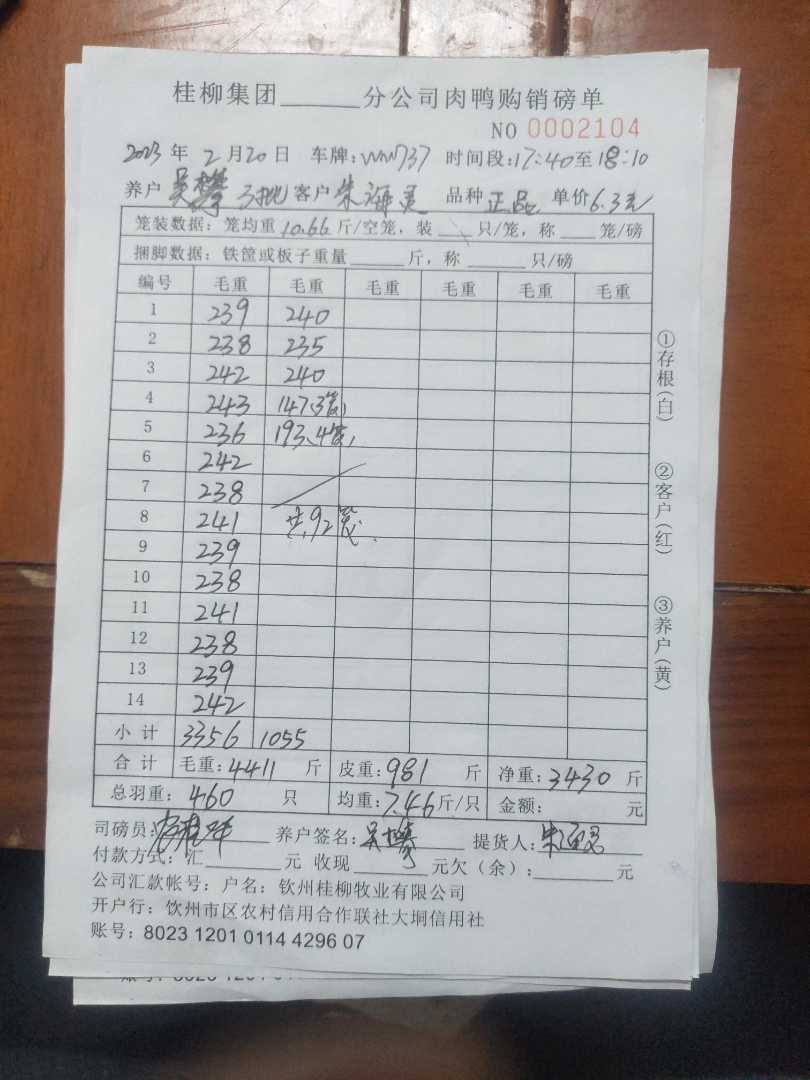 桂柳集团______分公司肉鸭购销磅单
NO 0002104
2023年2月20日 车牌:WW737 时间段:17:40至18:10
养户 吴攀 3批 客户 朱海灵 品种 正品 单价6.3元
笼装数据: 笼均重 10.66 斤/空笼, 装___只/笼, 称___笼/磅
捆脚数据: 铁筐或板子重量______斤, 称______只/磅
编号 毛重 毛重 毛重 毛重 毛重 毛重
1 239 240
2 238 235
3 242 240
4 243 147.3笼
5 236 193.4笼
6 242
7 238
8 241 共92笼
9 239
10 238
11 241
12 238
13 239
14 242
小计 3356 1055
合计 毛重:4411斤 皮重:981斤 净重:3430斤
总羽重: 460 只 均重:7.46斤/只 金额: 元
司磅员: 养户签名:吴攀 提货人:朱海灵
付款方式: 汇______元 收现______元欠(余):______元
公司汇款帐号: 户名: 钦州桂柳牧业有限公司
开户行: 钦州市区农村信用合作联社大垌信用社
账号: 8023 1201 0114 4296 07
①存根(白)
②客户(红)
③养户(黄)